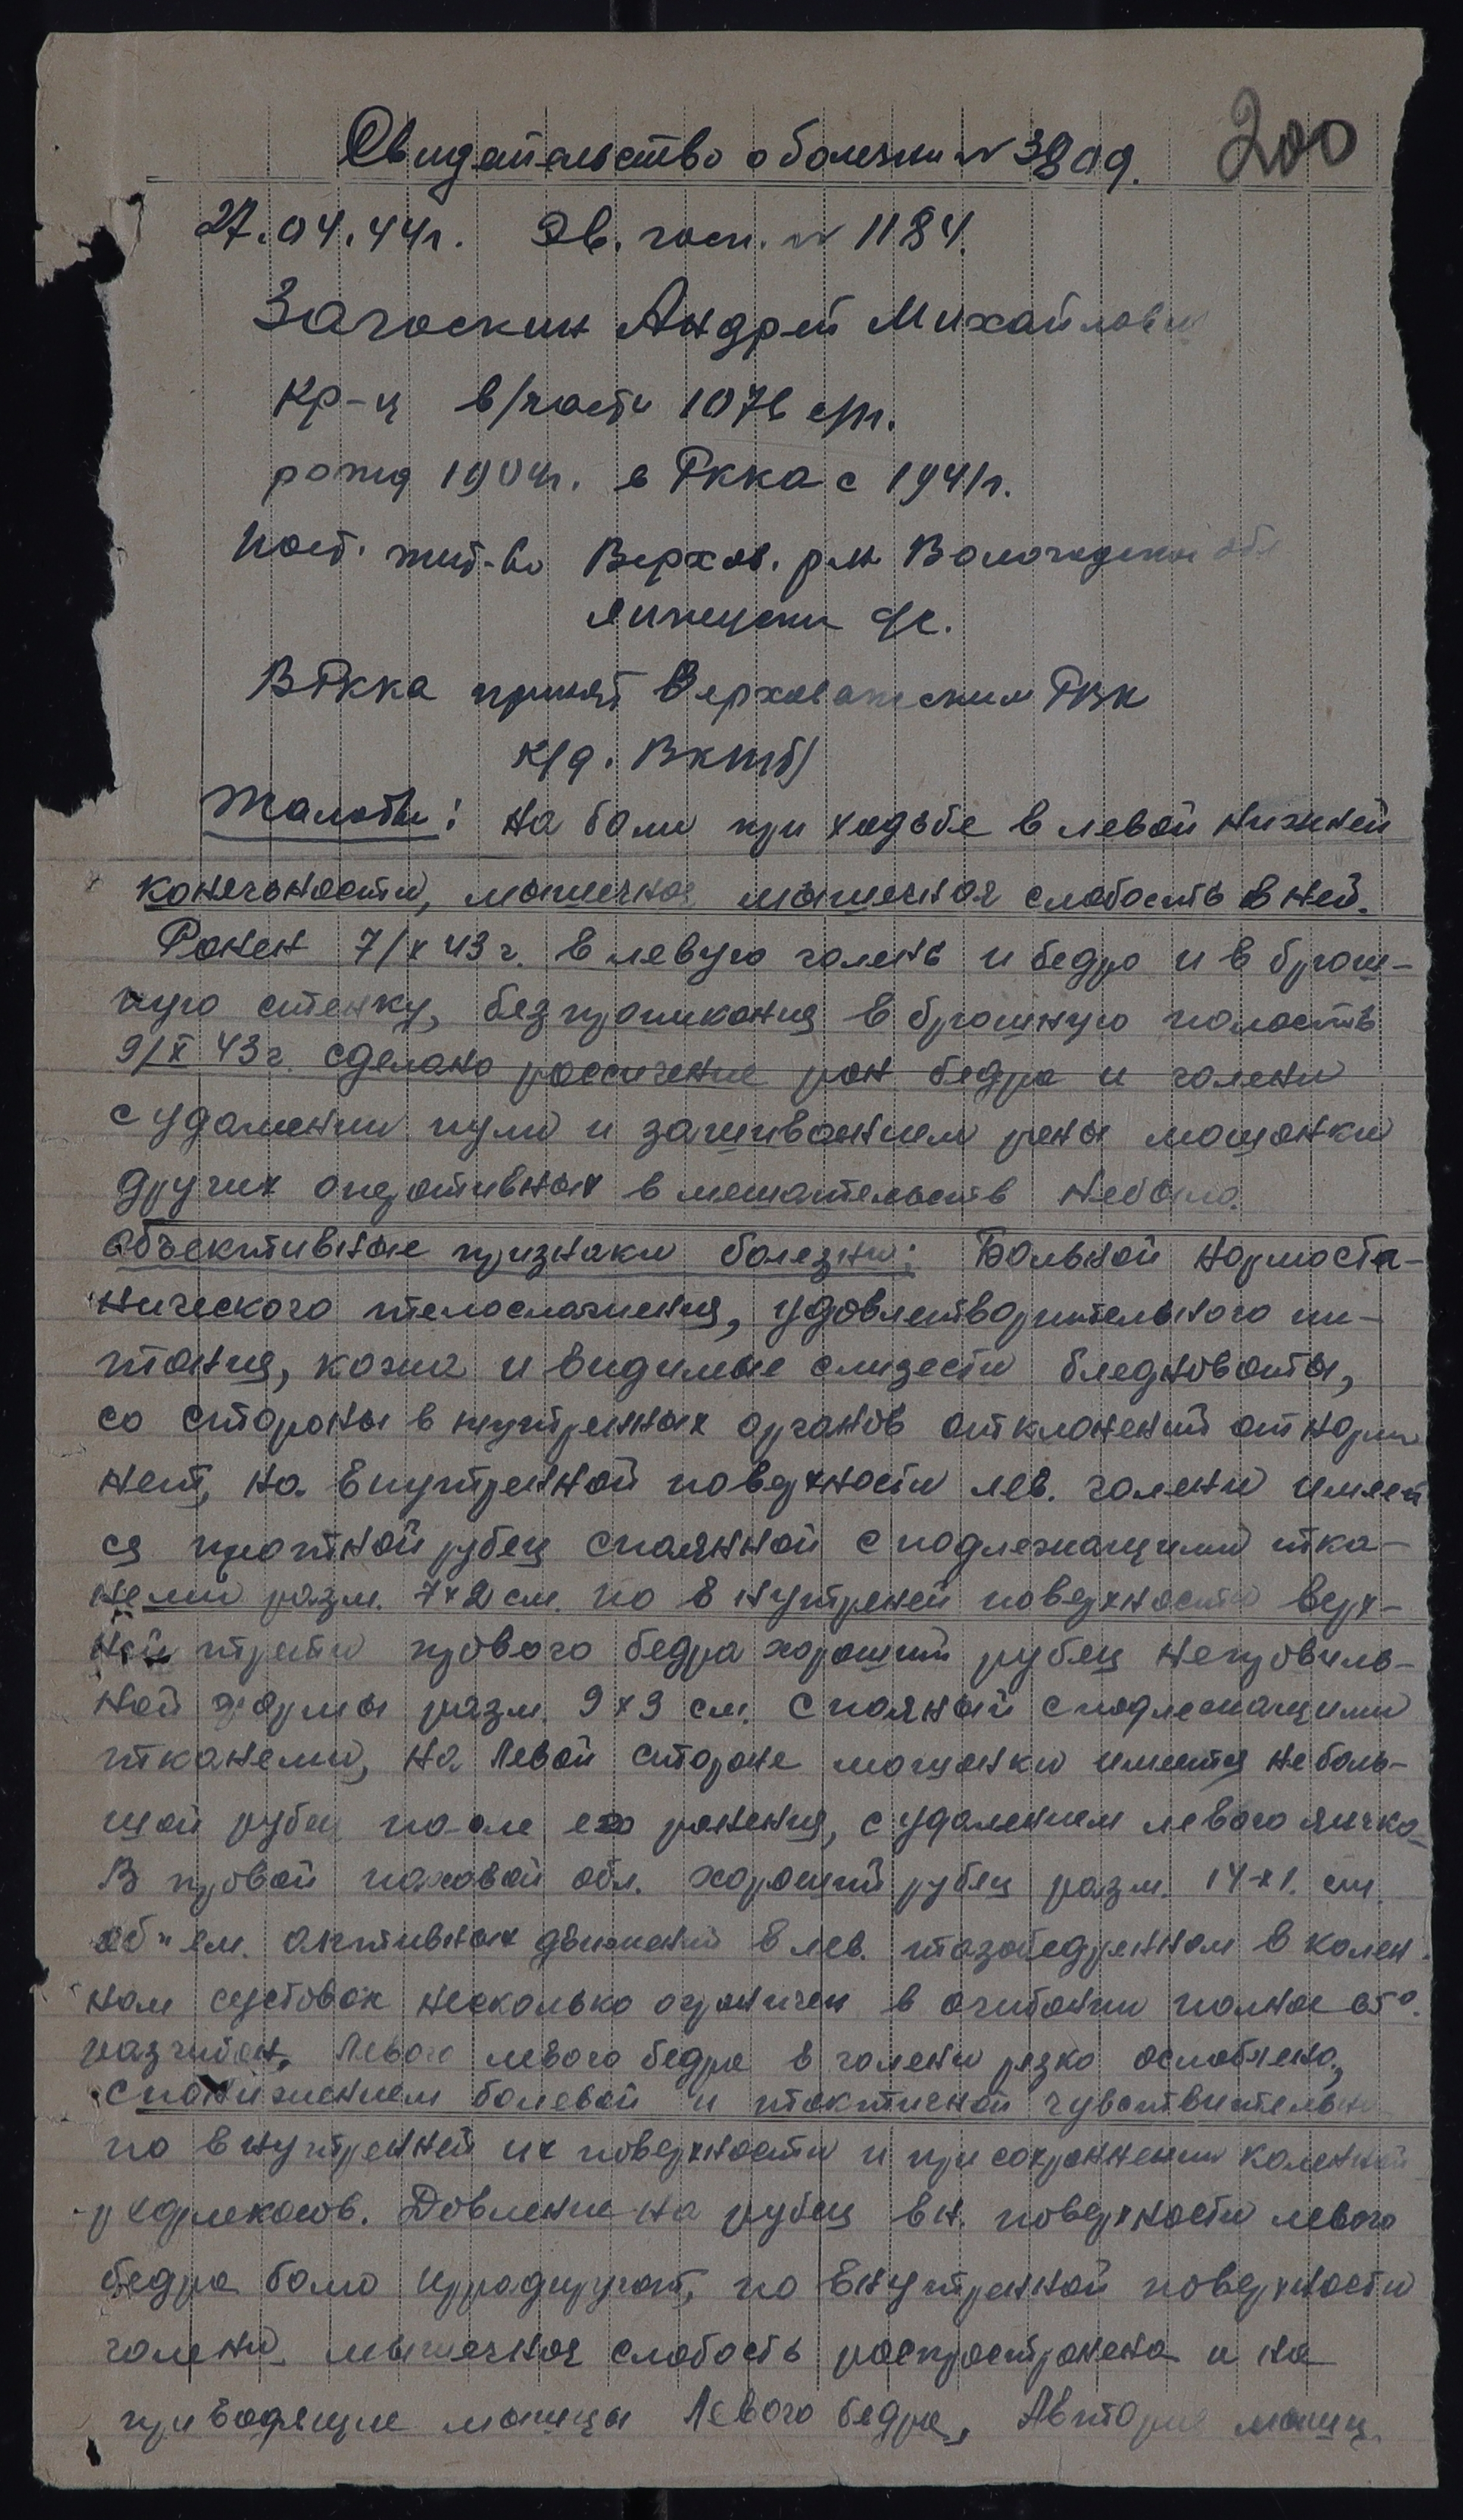 Свидетельство о болезни № 3809.
200
27.04.44г. Эв. госп. № 1184.
Загоскин Андрей Михайлови
кр-ц в/части 1076 с/п.
рожд 1904г. в РККА с 1941г.
Пост. жит-во Верхов. р-н Вологодской обл
с/с.
В РККА принят Верховажским РВК
К/д. ВКПб/
Жалобы: на боли при ходьбе в левой нижней
конечности, мышечная мышечная слабость в ней.
Ранен 7/X 43 г. в левую голень и бедро и в брюш-
ную стенку, без проникания в брюшную полость
9/X 43 г. сделано рассичение ран бедра и голени
с удалении пули и зашиванием раны мошонки
других оперативных вмешательств небыло.
Объективные признаки болезни: Больной нормоста-
нического телосложения, удовлетворительного пи-
тания, кожа и видимые слизести бледноваты,
со стороны внутренных органов отклонений от норм
нет, на внутренной поверхности лев. голени имеет
ся плотной рубец спаянной с подлежащими тка-
неми разм. 7х2 см. по внутреней поверхности верх-
ней трети правого бедра хороший рубец неправиль-
ной формы разм. 9х3 см. спаяный с подлежащими
тканеми, на левой стороне мошонки имеется неболь-
шой рубец после его ранения, с удалением левого яичка
В правой паховой обл. хороший рубец разм. 14х1. см.
об"ем. активных движений в лев. тазобедренном в колен
ном суставах несколько ограничен в сгибании полное 65°.
разгибан. левого бедра в голени резко ослаблено,
с понижением болевой и тактичной чувствительн
по внутренней их поверхности и при сохранении коленной
рефлексов. Давление на рубец вн. поверхности левого
бедра боли иррадируют, по внутренной поверхности
голени. мышечная слабость распространена и на
приводящие мышцы левого бедра, мышц.